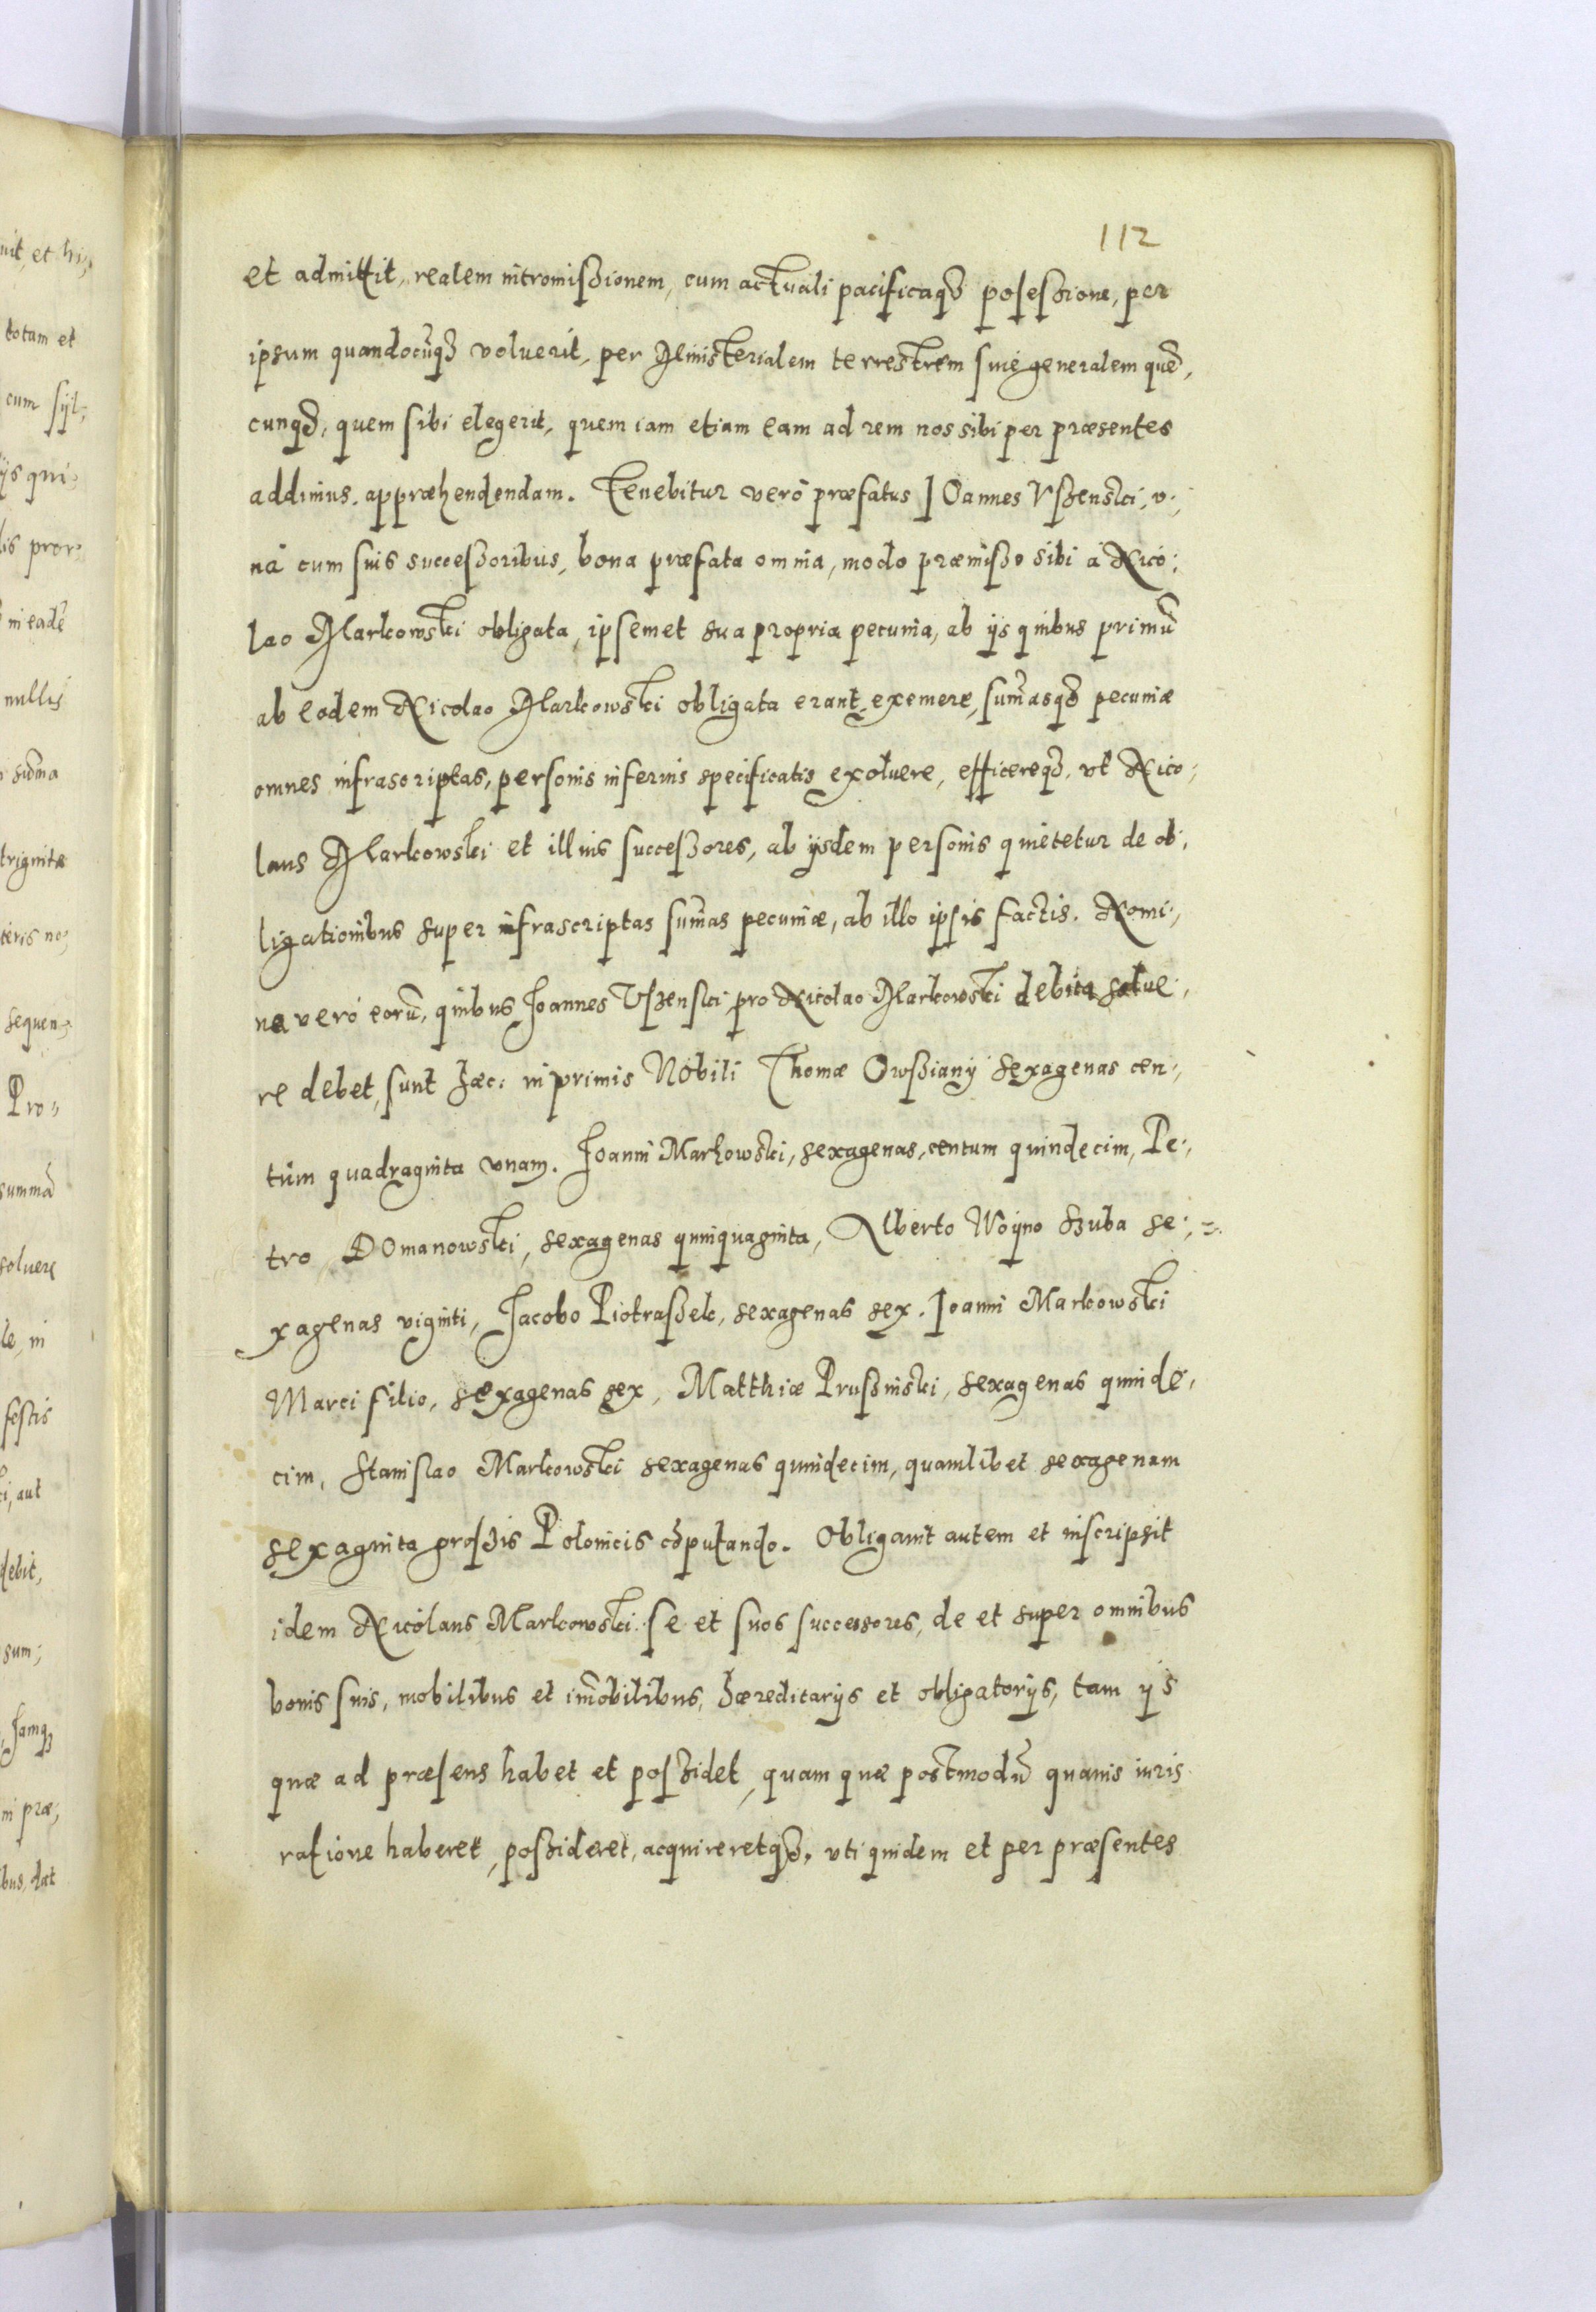 112
et admittit, realem intromissionem, cum actuali pacificaqȝ posessione, per
ipsum quandocūqȝ voluerit, per Ministerialem terrestrem siue generalem quē,
cunqȝ, quem sibi elegerit, quem iam etiam eam ad rem nos sibi per præsentes
addimus. appræhendendam. Tenebitur verò præfatus IOannes Vszenski, v;
nà cum suis successoribus, bona præfata omnia, modo præmisso sibi à Nico;
lao Markowski obligata, ipsemet sua propria pecunia, ab ijs quibus primū
ab eodem Nicolao Markowski obligata erant, exemere, sum̄asqȝ pecuniæ
omnes infrascriptas, personis inferius specificatis exoluere, efficereqȝ, vt Nico;
laus Markowski et illius successores, ab ijsdem personis quietetur de ob;
ligationibus super infrascriptas sum̄as pecuniæ, ab illo ipsis factis. Nomi;
na verò eorū, quibus Joannes Vszenski pro Nicolao Markowski debita solue;
re debet, sunt hæc: inprimis Nobili Thomæ Owssiany sexagenas cen;
tùm quadraginta vnam. Joanni Markowski, sexagenas, centum quindecim, Pe;
tro DOmanowski, sexagenas quinquaginta, Alberto Woyno Szuba se;
xagenas viginti, Jacobo Piotraszek, sexagenas sex. Joanni Markowski
Marci filio, sexagenas sex, Matthiæ Prussinski, sexagenas quinde,
cim, Stanislao Markowski sexagenas quindecim, quamlibet sexagenam
sexaginta grossis Polonicis cōputando. Obligauit autem et inscripsit
idem Nicolaus Markowski. se et suos successores, de et super omnibus
bonis suis, mobilibus et im̄obilibus, hæreditarijs et obligatorijs, tam ijs
quæ ad præsens habet et possidet, quam quæ postmodū quauis iuris
ratione haberet, possideret, acquireretqȝ, vti quidem et per præsentes
nit, et hi;
totam et
cum syl;
ijs qui;
lis pror;
in eadē
nullis
sūma
triginta
teris no;
sequen;
Pro;
summā
soluere
le, in
festis
ci, aut
debit,
sum;
Jamqȝ
in præ;
bus, dat